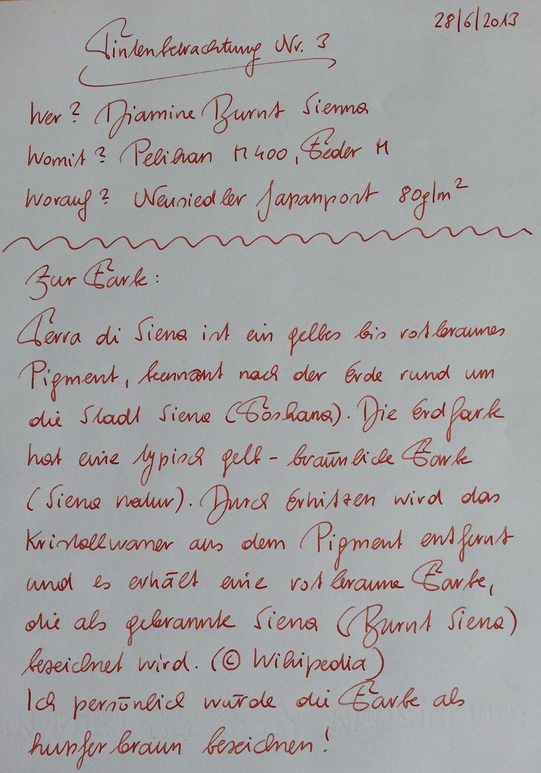 28/6/2013
Tintenbetrachtung Nr. 3
Wer? Diamine Burnt Sienna
Womit? Pelikan M400, Feder M
Worauf? Neusiedler Japanpost 80g/m²
Zur Farbe:
Terra di Siena ist ein gelbes bis rotbraunes
Pigment, benannt nach der Erde rund um
die Stadt Siena (Toskana). Die Erdfarbe
hat eine typisch gelb-bräunliche Farbe
(Siena natur). Durch Erhitzen wird das
Kristallwasser aus dem Pigment entfernt
und es erhält eine rotbraune Farbe,
die als gebrannte Siena (Burnt Siena)
bezeichnet wird. (© Wikipedia)
Ich persönlich würde die Farbe als
kupferbraun bezeichnen!